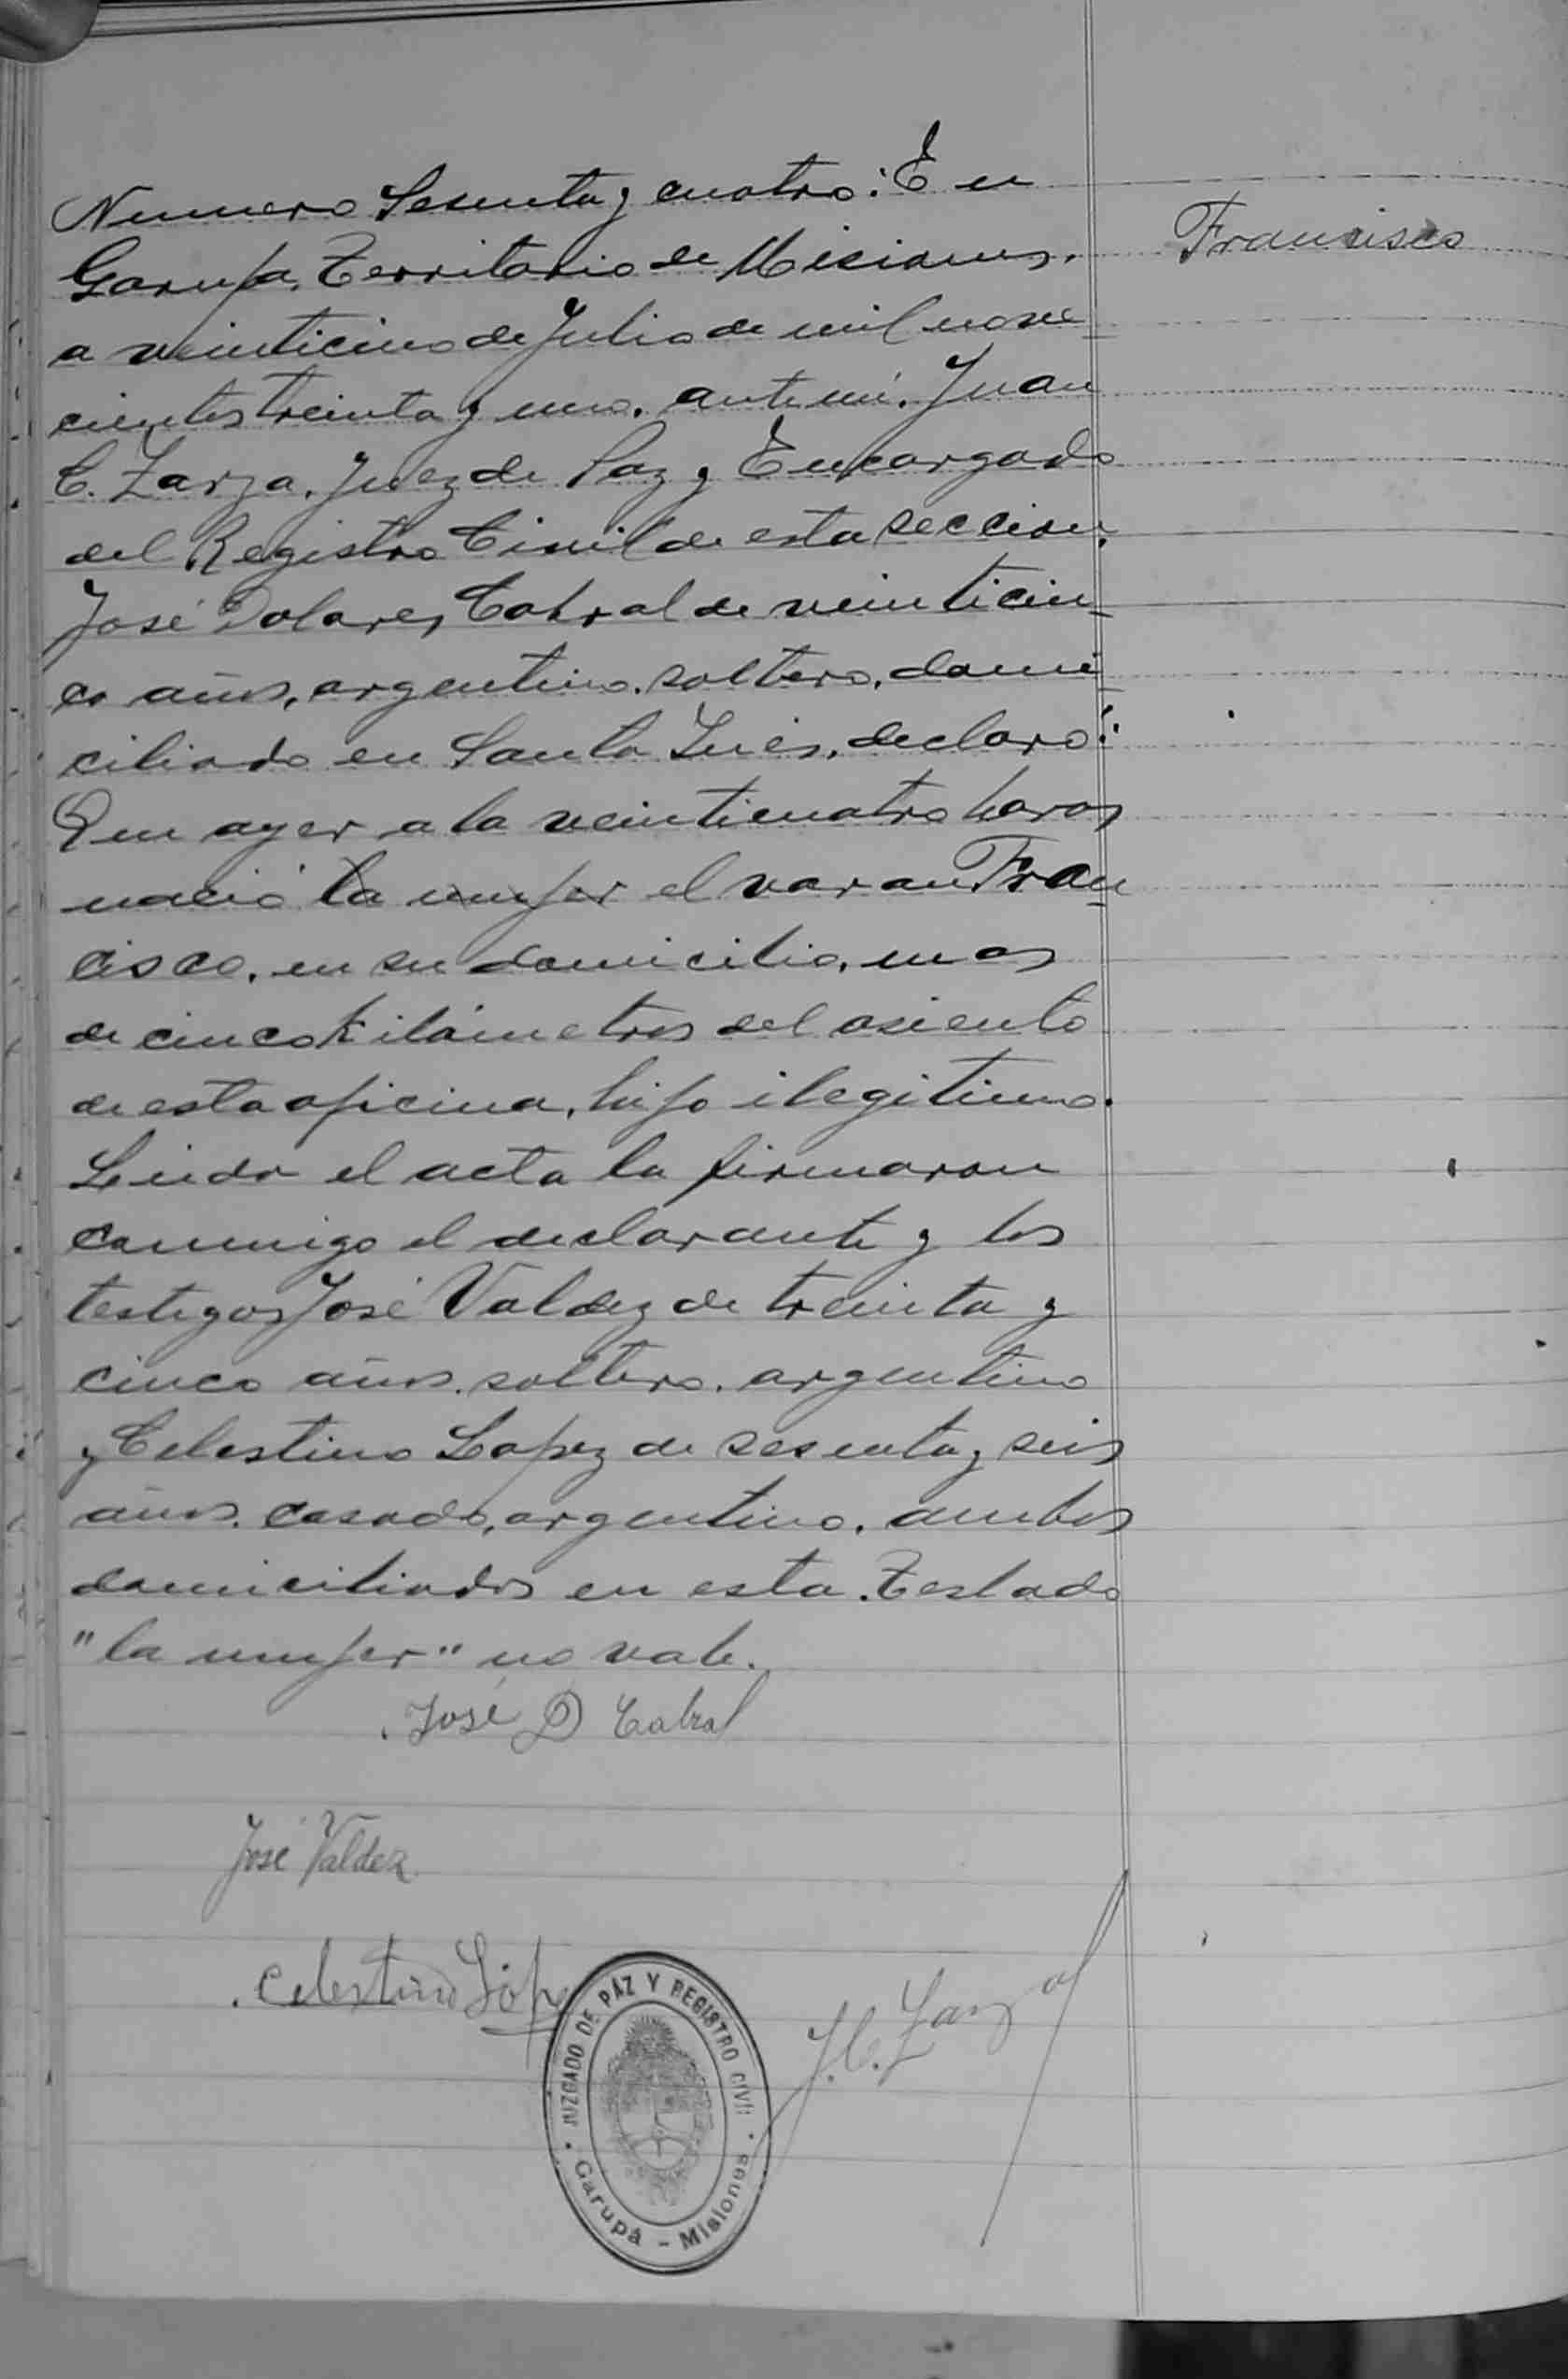 Numero Sesenta y cuatro: En
Francisco
Garupa, Territorio de Misiones,
a veinticinco de Julio de mil nove-
cientos treinta y uno, ante mi, Juan
C. Zarza, Juez de Paz y Encargado
del Registro Civil de esta seccion,
José Dolores Cabral de veinticin-
co años, argentino, soltero, domi-
ciliado en Santa Inés, declaró:
Que ayer a la veinticuatro horas
nació la mujer el varon Fran-
cisco, en su domicilio, mas
de cinco kilómetros del asiento
de esta oficina, hijo ilegitimo.
Leida el acta la firmaron
conmigo el declarante y los
testigos José Valdez de treinta y
cinco años, soltero, argentino
y Celestino Lopez de sesenta y seis
años, casado, argentino, ambos
domiciliados en esta. Testado
"la mujer" no vale.
José D Cabral
José Valdez
Celestino López
J. C. Zarza
JUZGADO DE PAZ Y REGISTRO CIVIL
Garupá - Misiones